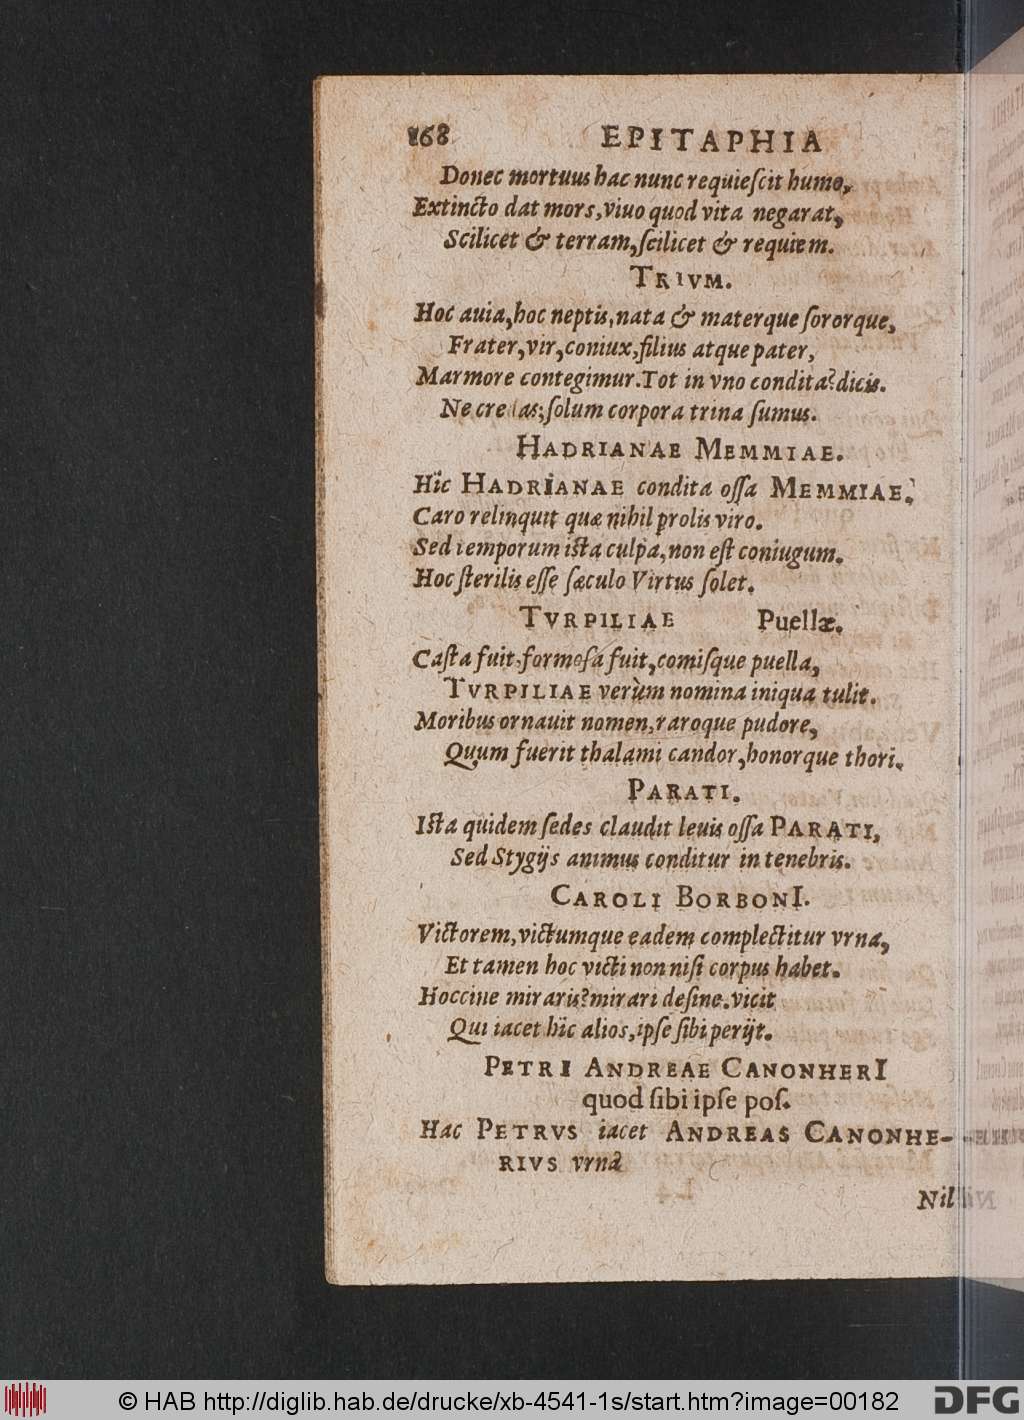 168 EPITAPHIA
Donec mortuus hac nunc requieſcit humo,
Extincto dat mors, viuo quod vita negarat,
Scilicet & terram, ſcilicet & requiem.
TRIVM.
Hoc auia, hoc neptis, nata & materque ſororque,
Frater, vir, coniux, filius atque pater,
Marmore contegimur. Tot in vno condita? dicis.
Ne cre as; ſolum corpora trina ſumus.
HADRIANAE MEMMIAE.
Hîc HADRIANAE condita oſſa MEMMIAE.
Caro relinquit quæ nihil prolis viro.
Sed temporum iſta culpa, non eſt coniugum.
Hoc ſterilis eſſe ſæculo Virtus ſolet.
TVRPILIAE Puellæ.
Caſta fuit, formoſa fuit, comiſque puella,
TVRPILIAE verùm nomina iniqua tulit.
Moribus ornauit nomen, raroque pudore,
Quum fuerit thalami candor, honorque thori.
PARATI.
Iſta quidem ſedes claudit leuis oſſa PARATI,
Sed Stygijs animus conditur in tenebris.
CAROLI BORBONI.
Victorem, victumque eadem complectitur vrna,
Et tamen hoc victi non niſi corpus habet.
Hoccine miraris? mirari deſine. vicit
Qui iacet hîc alios, ipſe ſibi perijt.
PETRI ANDREAE CANONHERI
quod ſibi ipſe poſ.
Hac PETRVS iacet ANDREAS CANONHE-
RIVS vrnâ
Nil
© HAB http://diglib.hab.de/drucke/xb-4541-1s/start.htm?image=00182
DFG